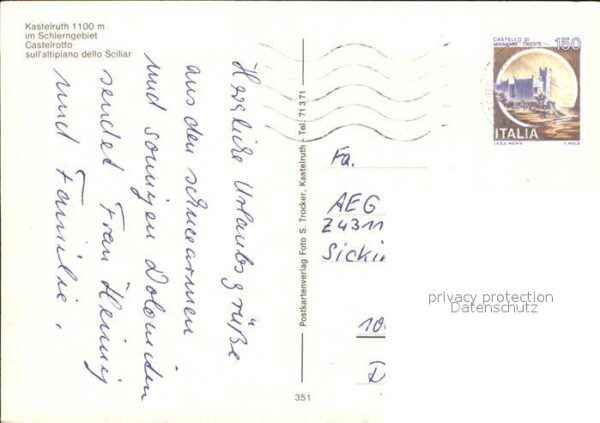 Kastelruth 1100 m
im Schlerngebiet
Castelrotto
sull'altipiano dello Sciliar
Herzliche Urlaubsgrüße
aus den schneearmen
und sonnigen Dolomiten
sendet Frau Heinij
und Familie.
Postkartenverlag Foto S. Trocker, Kastelruth - Tel. 71371
351
CASTELLO DI
MIRAMARE · TRIESTE
150
ITALIA
I.P.Z.S.-ROMA
Fa.
AEG
Z4311
Sickin
10
D
privacy protection
Datenschutz